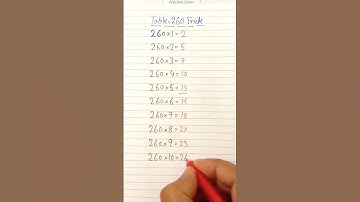 WEDNESDAY
Table of 260 Trick
260×1=2
260×2=5
260×3=7
260×4=10
260×5=13
260×6=15
260×7=18
260×8=20
260×9=23
260×10=26